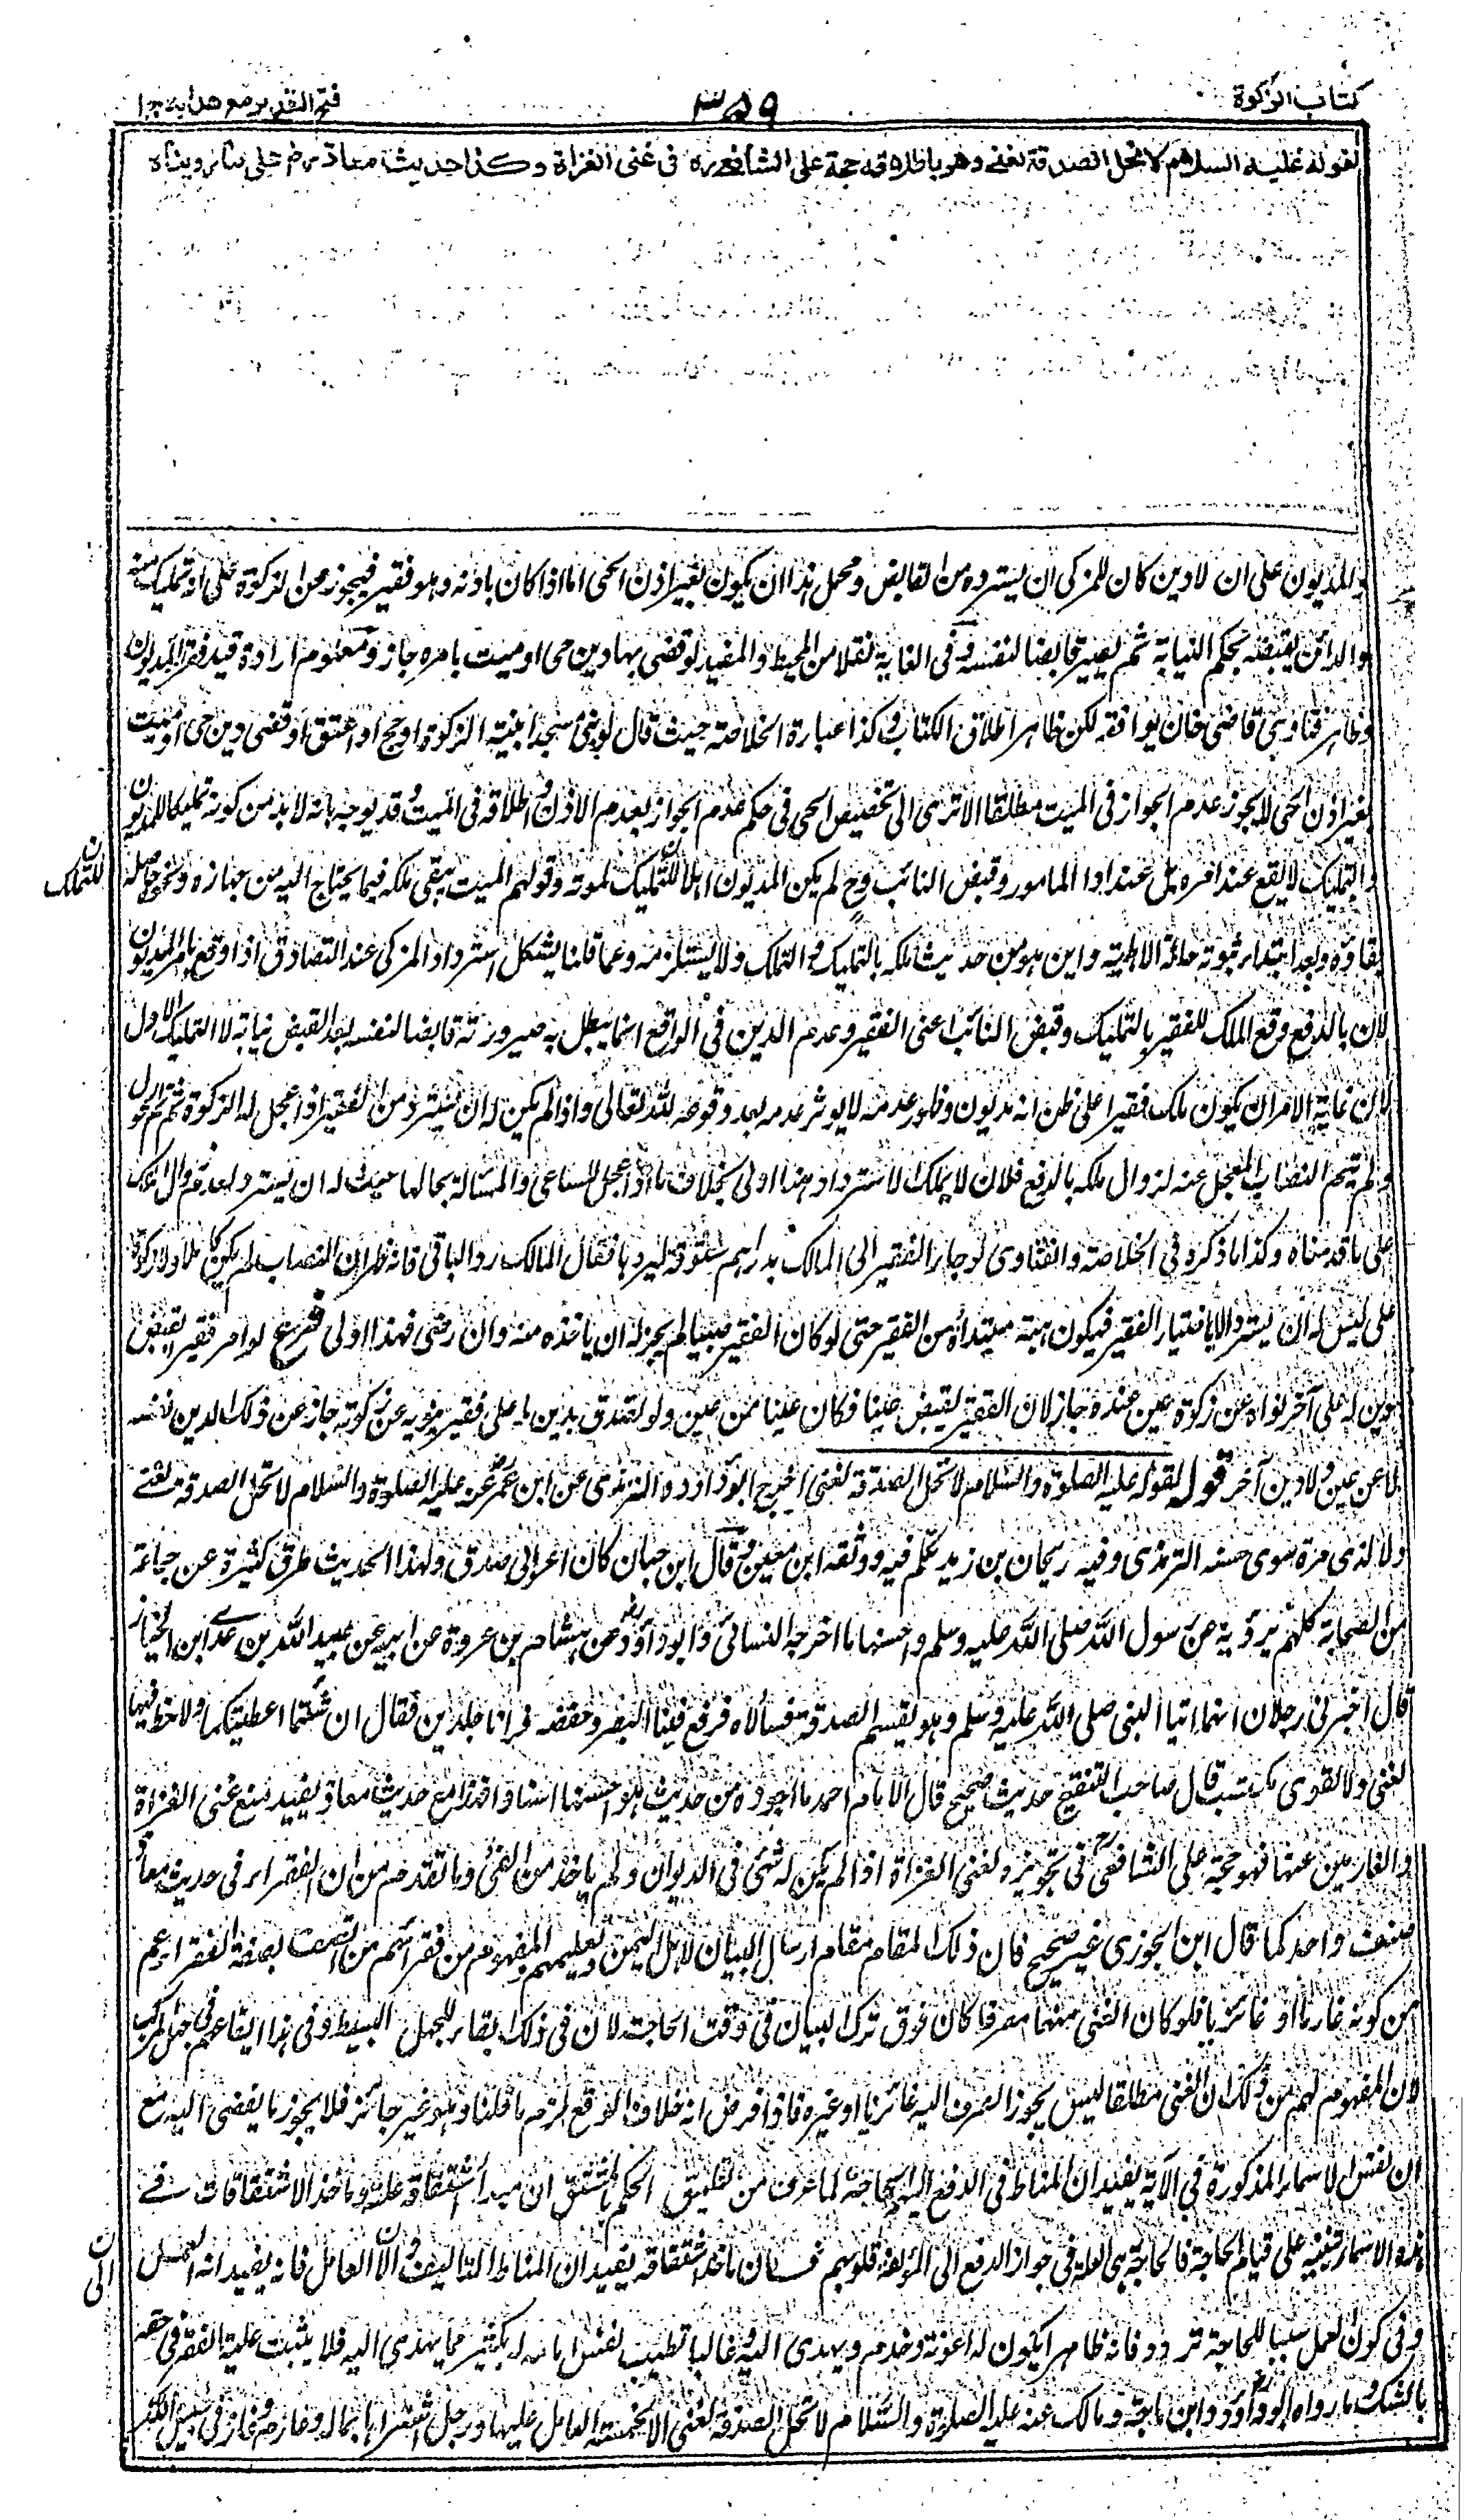 كتاب الزكوة
٣٥٩
فتح القدير مع هدايه ج ١
لقوله عليه السلام لا تحل الصدقة لغني وهو باطلاقه حجة على الشافعي ره في غنى الغزاة وكذا حديث معاذ رض على ما رويناه
والمديون على ان لا دين كان للمزكى ان يسترده من القابض ومحمل هذا ان يكون بغير اذن الحى اما اذا كان باذنه وهو فقير فيجوز عن الزكوة على انه تمليك منه
والدائن يقبضه بحكم النيابة ثم يصير قابضا لنفسه وفى الغاية نقلا من المحيط والمفيد لو قضى بها دين حى او ميت بامره جاز ومعلوم ارادة قيد فقر المديون
وظاهر فتاوى قاضى خان يوافقه لكن ظاهر اطلاق الكتاب وكذا عبارة الخلاصة حيث قال لو بنى مسجدا بنية الزكوة او حج او اعتق او قضى دين حى او ميت
بغير اذن الحى لا يجوز عدم الجواز فى الميت مطلقا الا ترى الى تخصيص الحى فى حكم عدم الجواز بعدم الاذن واطلاقه فى الميت وقد يوجه بانه لا بد من كونه تمليكا للمديون
والتمليك لا يقع عند امره بل عند اداء المامور وقبض النائب وح لم يكن المديون اهلا للتمليك لموته وقولهم الميت يبقى ملكه فيما يحتاج اليه من جهازه ونحوه حاصله
للتملك
بقاؤه بعد ابتداء ثبوته حالة الاهلية واين هو من حدوث ملكه بالتمليك والتملك ولا يستلزمه وعما قلنا يشكل استرداد المزكى عند التصادق اذا وقع بامر المديون
لان بالدفع وقع الملك للفقير بالتمليك وقبض النائب اعنى الفقير وعدم الدين فى الواقع انما يبطل به صيرورته قابضا لنفسه بعد القبض نيابة لا التمليك الاول
لان غاية الامر ان يكون ملك فقيرا على ظن انه مديون وظهور عدمه لا يوثر عدمه بعد وقوعه لله تعالى واذا لم يكن له ان يسترد من الفقير اذا عجل له الزكوة ثم تم الحول
ولم يتم النصاب المعجل عنه لزوال ملكه بالدفع فلان لا يملك الاسترداد هنا اولى بخلاف ما اذا عجل للساعى والمسالة بحالها حيث له ان يسترد لعدم زوال الملك
على ما قدمناه وكذا ما ذكره فى الخلاصة والفتاوى لو جاء الفقير الى المالك بدراهم ستوقة ليردها فقال المالك رد الباقى فانه ظهر ان النصاب لم يكن كاملا ولا زكوة
على ليس له ان يسترد الا باختيار الفقير فيكون هبة مبتدأة من الفقير حتى لو كان الفقير صبيا لم يجز له ان ياخذه منه وان رضى فهذا اولى فرع لو امر فقيرا بقبض
دين له على آخر نواه عن زكوة عين عنده جاز لان الفقير يقبض عينا فكان عينا عن عين ولو تصدق بدين له على فقير ينويه عن زكوته جاز عن ذلك الدين نفسه
لا عن عين ولا دين آخر قوله لقوله عليه الصلوة والسلام لا تحل الصدقة لغنى اخرج ابو داود والترمذى عن ابن عمر عنه عليه الصلوة والسلام لا تحل الصدقة لغنى
ولا لذى مرة سوى حسنه الترمذى وفيه ريحان بن زيد تكلم فيه ووثقه ابن معين وقال ابن حبان كان اعرابى صدق ولهذا الحديث طرق كثيرة عن جماعة
من الصحابة كلهم يرويه عن رسول الله صلى الله عليه وسلم واحسنها ما اخرجه النسائى وابو داود عن هشام بن عروة عن ابيه عن عبيد الله بن عدى ابن الخيار
قال اخبرنى رجلان انهما اتيا النبى صلى الله عليه وسلم وهو يقسم الصدقة فسألاه فرفع فينا البصر وخفضه فرآنا جلدين فقال ان شئتما اعطيتكما ولا حظ فيها
لغنى ولا لقوى مكتسب قال صاحب التنقيح حديث صحيح قال الامام احمد ما اجوده من حديث هو احسنها اسنادا فهذا مع حديث معاذ يفيد منع غنى الغزاة
والغارمين عنها فهو حجة على الشافعى رح فى تجويزه لغنى الغزاة اذا لم يكن له شئ فى الديوان ولم ياخذ من الفئ وما تقدم من ان الفقراء فى حديث معاذ
صنف واحد كما قال ابن الجوزى غير صحيح فان ذلك المقام مقام ارسال البيان لاهل اليمن وتعليمهم والمفهوم من فقرائهم من اتصف بصفة الفقر اعم
من كونه غارما او غازيا فلو كان الغنى منهما مصرفا كان فوق ترك البيان فى وقت الحاجة لان فى ذلك ابقاء للجهل البسيط وفى هذا ايقاعهم فى جهل المركب
لان المفهوم لهم من ذلك ان الغنى مطلقا ليس يجوز الصرف اليه غازيا او غيره فاذا فرض انه خلاف الواقع لزم ما قلنا وهو غير جائز فلا يجوز ما يفضى اليه مع
ان نفس الاسماء المذكورة فى الآية يفيد ان المناط فى الدفع اليهم الحاجة لما عرف من تعليق الحكم بالمشتق ان مبدأ اشتقاقه علته وماخذ الاشتقاقات فى
هذه الاسماء تنبيه على قيام الحاجة فالحاجة هى العلة فى جواز الدفع الا المؤلفة قلوبهم فان ماخذ اشتقاقه يفيد ان المناط التاليف والا العامل فانه يفيد انه العمل
الى ان
وفى كون العمل سببا للحاجة تردد فانه ظاهرا يكون له اعونة وخدم ويهدى اليه وغالبا تطيب نفس امامه له بكثير مما يهدى اليه فلا يثبت علية الفقر فى حقه
بالشك وما رواه ابو داود وابن ماجة ومالك عنه عليه الصلوة والسلام لا تحل الصدقة لغنى الا لخمسة العامل عليها ورجل اشتراها بماله وغارم وغاز فى سبيل الله